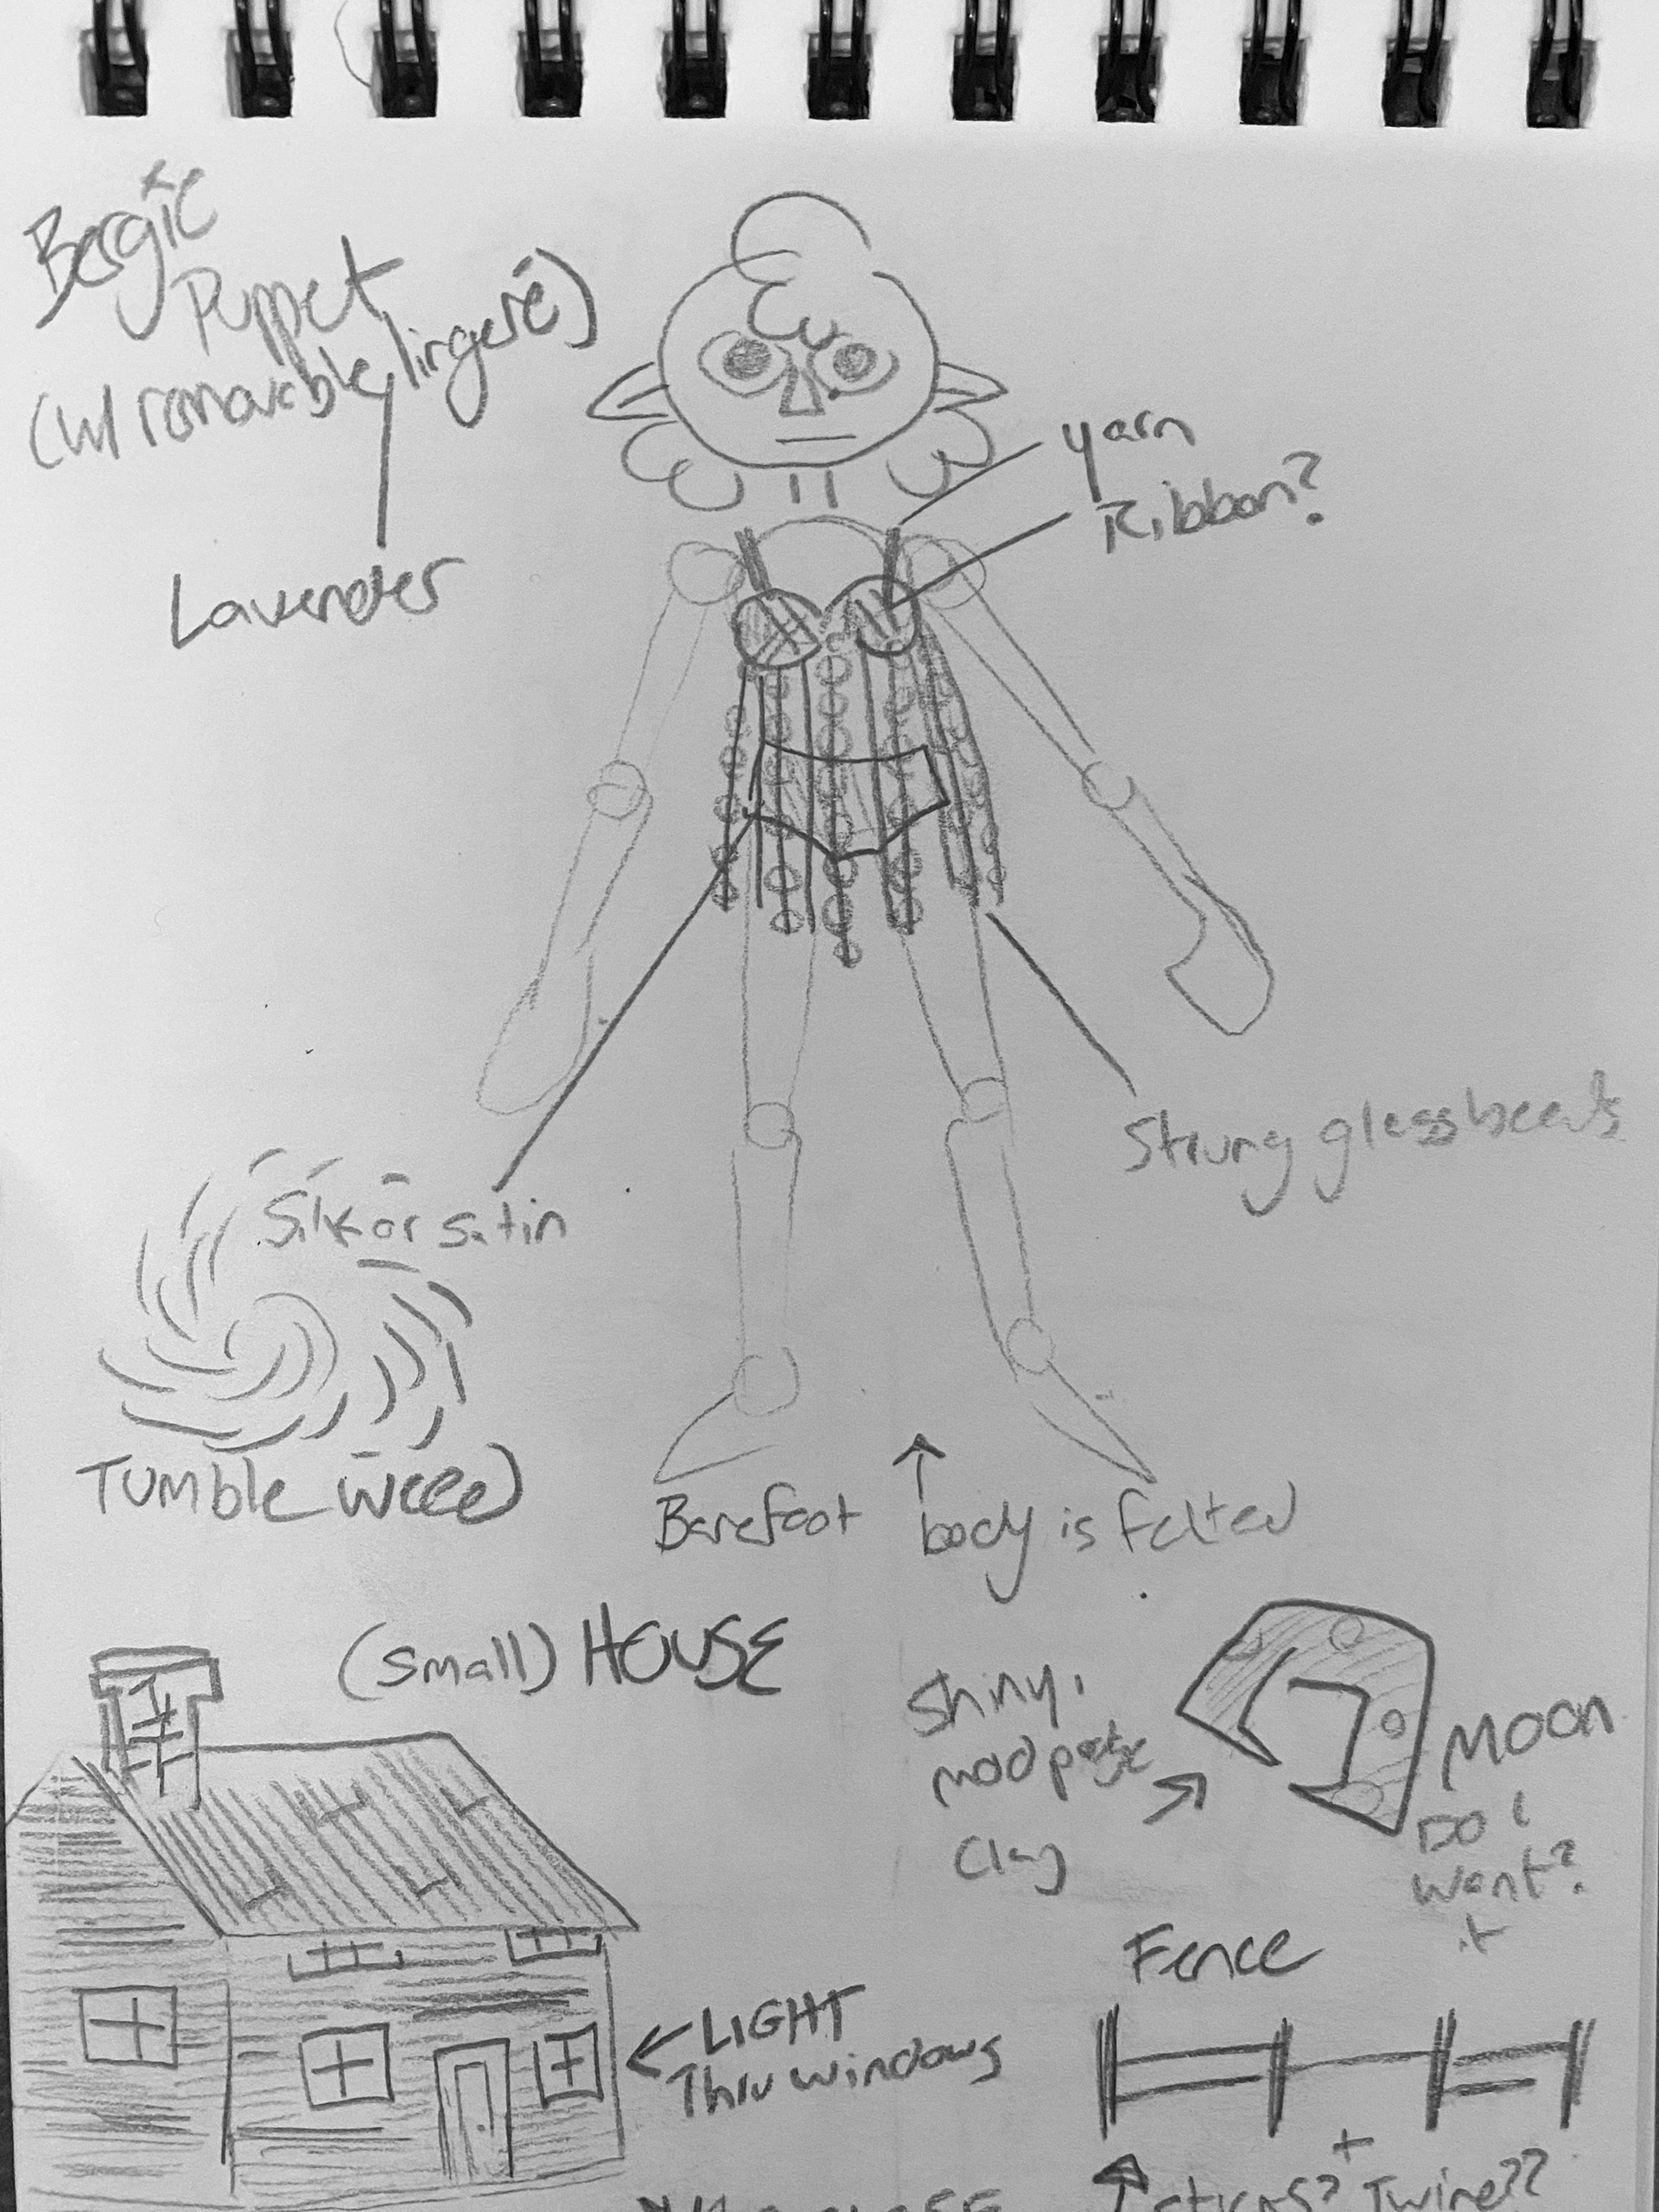 Bergie
Puppet
(w/ removable lingerie)
Lavender
yarn
Ribbon?
Strung glass beads
Silk or satin
Tumble weed
Barefoot
body is felted
(small) HOUSE
Shiny,
mod podge
Clay
Moon
Do I
want?
Fence
LIGHT
Thru windows
Sticks? + Twine??